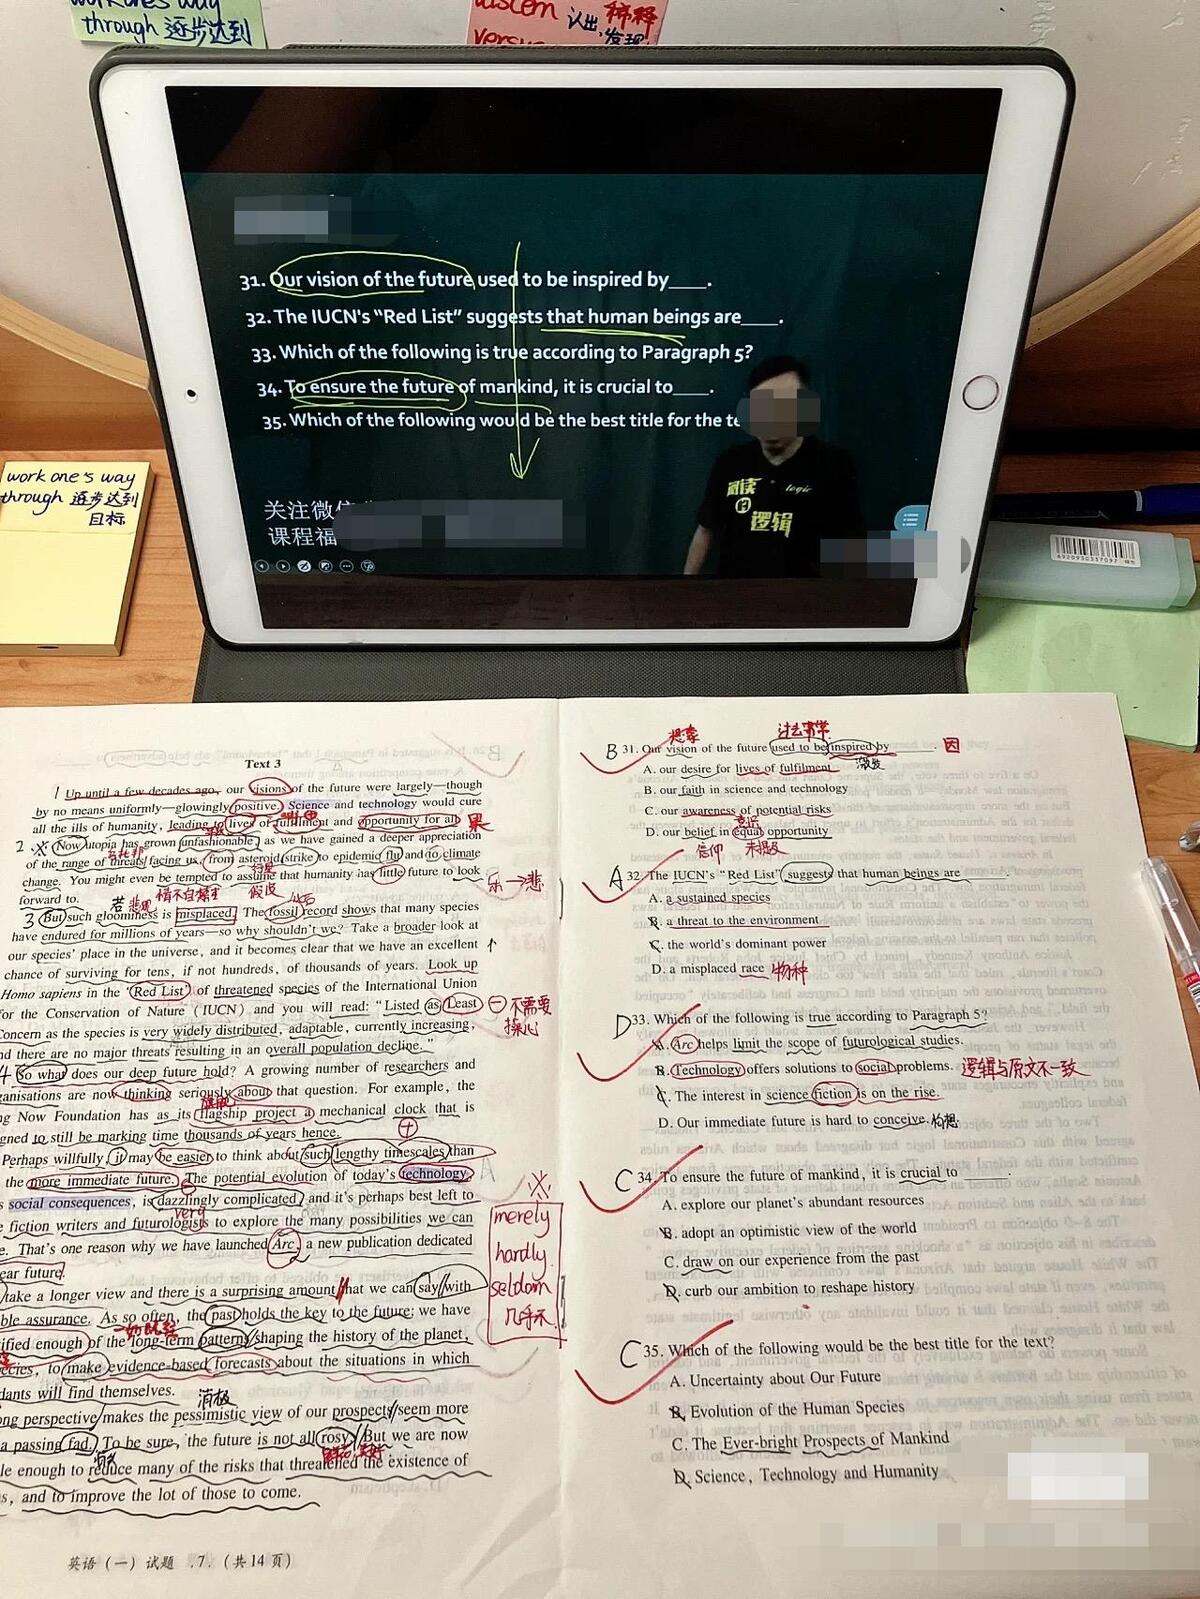 work one's way
through 逐步达到
discern 认出,发现
稀释
versus
31. Our vision of the future used to be inspired by____.
32. The IUCN's "Red List" suggests that human beings are____.
33. Which of the following is true according to Paragraph 5?
34. To ensure the future of mankind, it is crucial to____.
35. Which of the following would be the best title for the te
关注微信
课程福
阅读的逻辑
logic
work one's way
through 逐步达到
目标
6920930337097
Text 3
1 Up until a few decades ago, our visions of the future were largely—though
by no means uniformly—glowingly positive. Science and technology would cure
all the ills of humanity, leading to lives of fulfillment and opportunity for all. 果
2 ※ Now utopia has grown unfashionable, as we have gained a deeper appreciation
of the range of threats facing us, from asteroid strike to epidemic flu and to climate
change. You might even be tempted to assume that humanity has little future to look
forward to.
乌托邦
行星
乐→悲
若 悲观 情不自禁 假设 化石
3 But such gloominess is misplaced. The fossil record shows that many species
have endured for millions of years—so why shouldn't we? Take a broader look at
our species' place in the universe, and it becomes clear that we have an excellent
chance of surviving for tens, if not hundreds, of thousands of years. Look up
Homo sapiens in the "Red List" of threatened species of the International Union
for the Conservation of Nature (IUCN) and you will read: "Listed as Least
Concern as the species is very widely distributed, adaptable, currently increasing,
nd there are no major threats resulting in an overall population decline."
不需要
操心
4 So what does our deep future hold? A growing number of researchers and
anisations are now thinking seriously about that question. For example, the
ng Now Foundation has as its flagship project a mechanical clock that is
gned to still be marking time thousands of years hence.
旗舰
Perhaps willfully, it may be easier to think about such lengthy timescales than
the more immediate future. The potential evolution of today's technology,
s social consequences, is dazzlingly complicated, and it's perhaps best left to
very
e fiction writers and futurologists to explore the many possibilities we can
e. That's one reason why we have launched Arc, a new publication dedicated
ear future.
※
merely
hardly
seldom
几乎不
take a longer view and there is a surprising amount that we can say with
ble assurance. As so often, the past holds the key to the future: we have
ified enough of the long-term patterns shaping the history of the planet,
ecies, to make evidence-based forecasts about the situations in which
dants will find themselves.
消极
ng perspective makes the pessimistic view of our prospects seem more
a passing fad. To be sure, the future is not all rosy. But we are now
le enough to reduce many of the risks that threatened the existence of
s, and to improve the lot of those to come.
英语(一)试题 .7. (共14页)
想象 过去事常
B 31. Our vision of the future used to be inspired by ____. 因
激发
A. our desire for lives of fulfilment
B. our faith in science and technology
C. our awareness of potential risks
意识
D. our belief in equal opportunity
信仰 未提及
A 32. The IUCN's "Red List" suggests that human beings are ____
A. a sustained species
B. a threat to the environment
C. the world's dominant power
D. a misplaced race 物种
D 33. Which of the following is true according to Paragraph 5?
A. Arc helps limit the scope of futurological studies.
B. Technology offers solutions to social problems. 逻辑与原文不一致
C. The interest in science fiction is on the rise.
D. Our immediate future is hard to conceive. 构想
C 34. To ensure the future of mankind, it is crucial to ____.
A. explore our planet's abundant resources
B. adopt an optimistic view of the world
C. draw on our experience from the past
D. curb our ambition to reshape history
C 35. Which of the following would be the best title for the text?
A. Uncertainty about Our Future
B. Evolution of the Human Species
C. The Ever-bright Prospects of Mankind
D. Science, Technology and Humanity